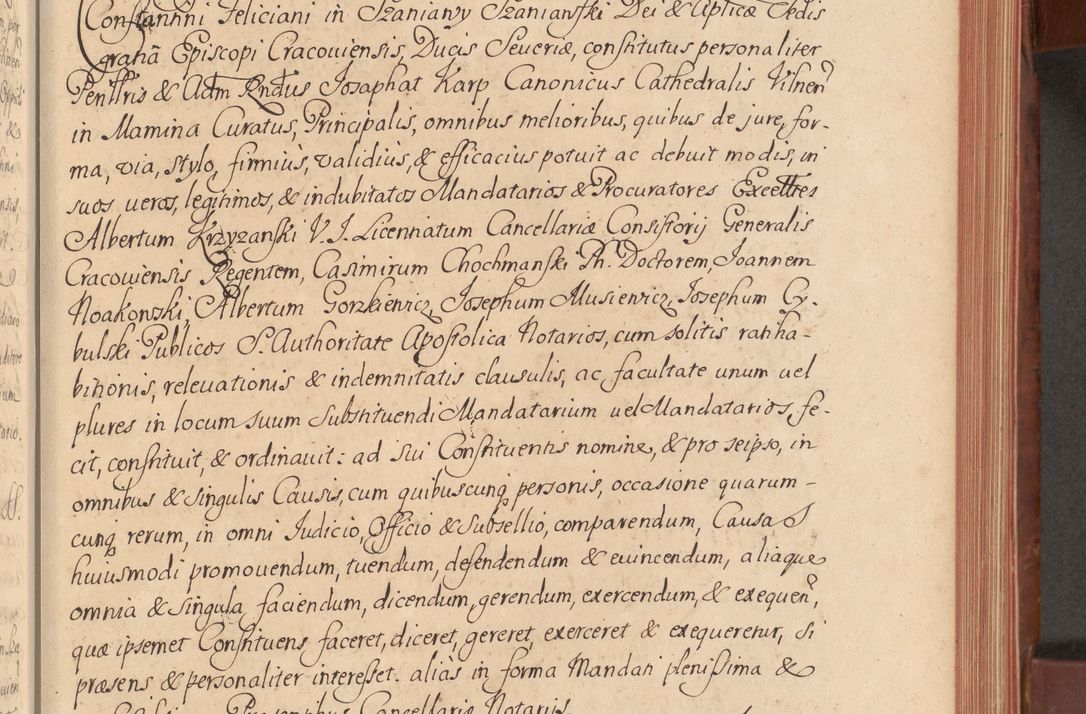 Constantini Feliciani in Szaniawy Szaniawski Dei & Aplicæ Sedis
gratiā Episcopi Cracoviensis, Ducis Severiæ, constitutus personaliter
Penllris & Adm Rndus Josaphat Karp Canonicus Cathedralis Vilnen
in Mamina Curatus, Principalis, omnibus melioribus, quibus de jure, for-
ma, via, stylo, firmiùs, validiùs, & efficacius potuit ac debuit modis, in
suos, veros, legitimos, & indubitatos Mandatarios & Procuratores Excelltes
Albertum Krzyzanski V. J. Licentiatum Cancellariæ Consistorij Generalis
Cracoviensis Regentem, Casimirum Chochmanski Ph. Doctorem, Joannem
Noakowski, Albertum Gorzkiewicz, Josephum Musiewicz, Josephum Cy-
bulski Publicos S. Authoritate Apostolica Notarios, cum solitis ratiha-
bitionis, relevationis & indemnitatis clausulis, ac facultate unum vel
plures in locum suum substituendi Mandatarium vel Mandatarios, fe-
cit, constituit, & ordinavit: ad sui Constituentis nomine, & pro seipso, in
omnibus & singulis Causis, cum quibuscunq personis, occasione quarum-
cunq rerum, in omni Judicio, Officio & Subsellio, comparendum, Causas
huiusmodi promovendum, tuendum, defendendum & evincendum, aliaque
omnia & singula faciendum, dicendum, gerendum, exercendum, & exequen,
quæ ipsemet Constituens faceret, diceret, gereret, exerceret & exequeretur, si
præsens & personaliter interesset. aliàs in forma Mandati plenissima &
Præsentibus Cancellariæ Notariis